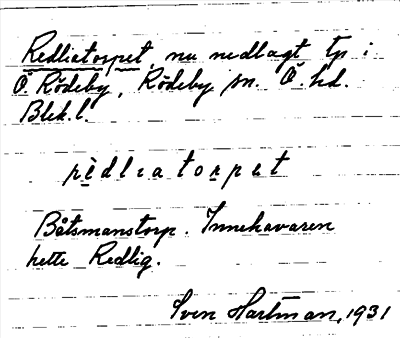 Redliatorpet, nu nedlagt tp i
Ö. Rödeby, Rödeby sn. Ö. hd.
Blek.l.
rèdlıatorpet
Båtsmanstorp. Innehavaren
hette Redlig.
Sven Hartman, 1931